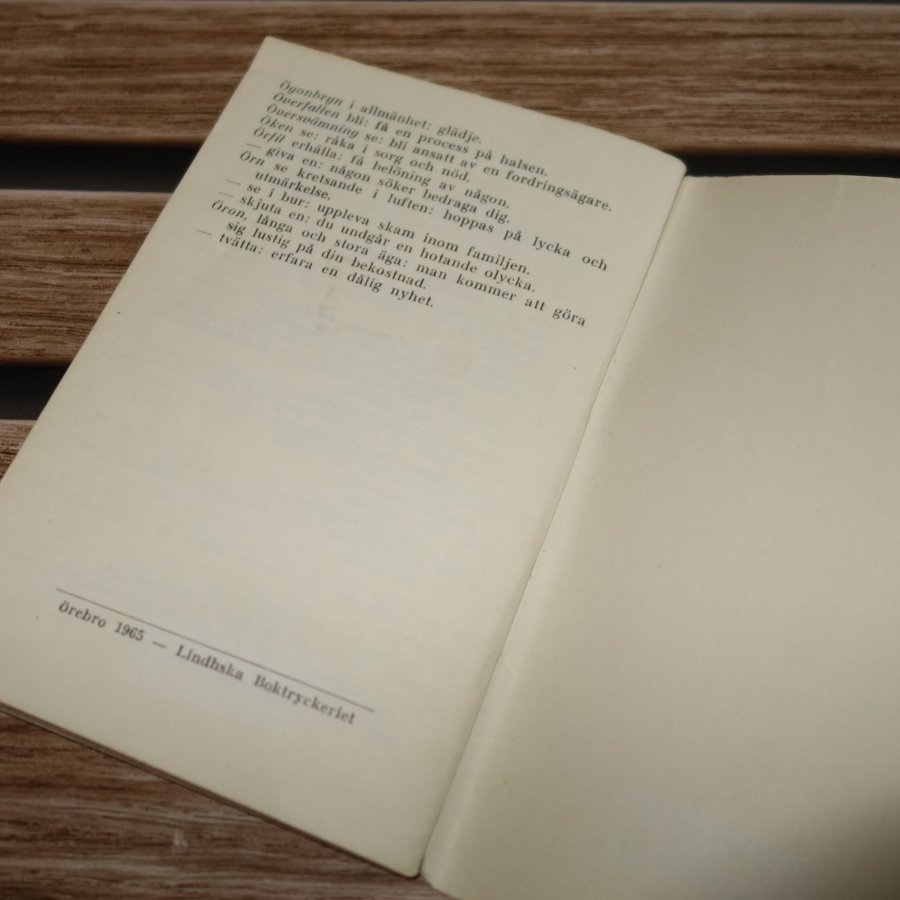 Ögonbryn i allmänhet: glädje.
Överfallen bli: få en process på halsen.
Översvämning se: bli ansatt av en fordringsägare.
Öken se: råka i sorg och nöd.
Örfil erhålla: få belöning av någon.
— giva en: någon söker bedraga dig.
Örn se kretsande i luften: hoppas på lycka och
utmärkelse.
— se i bur: uppleva skam inom familjen.
— skjuta en: du undgår en hotande olycka.
Öron, långa och stora äga: man kommer att göra
sig lustig på din bekostnad.
— tvätta: erfara en dålig nyhet.
Örebro 1965 — Lindhska Boktryckeriet